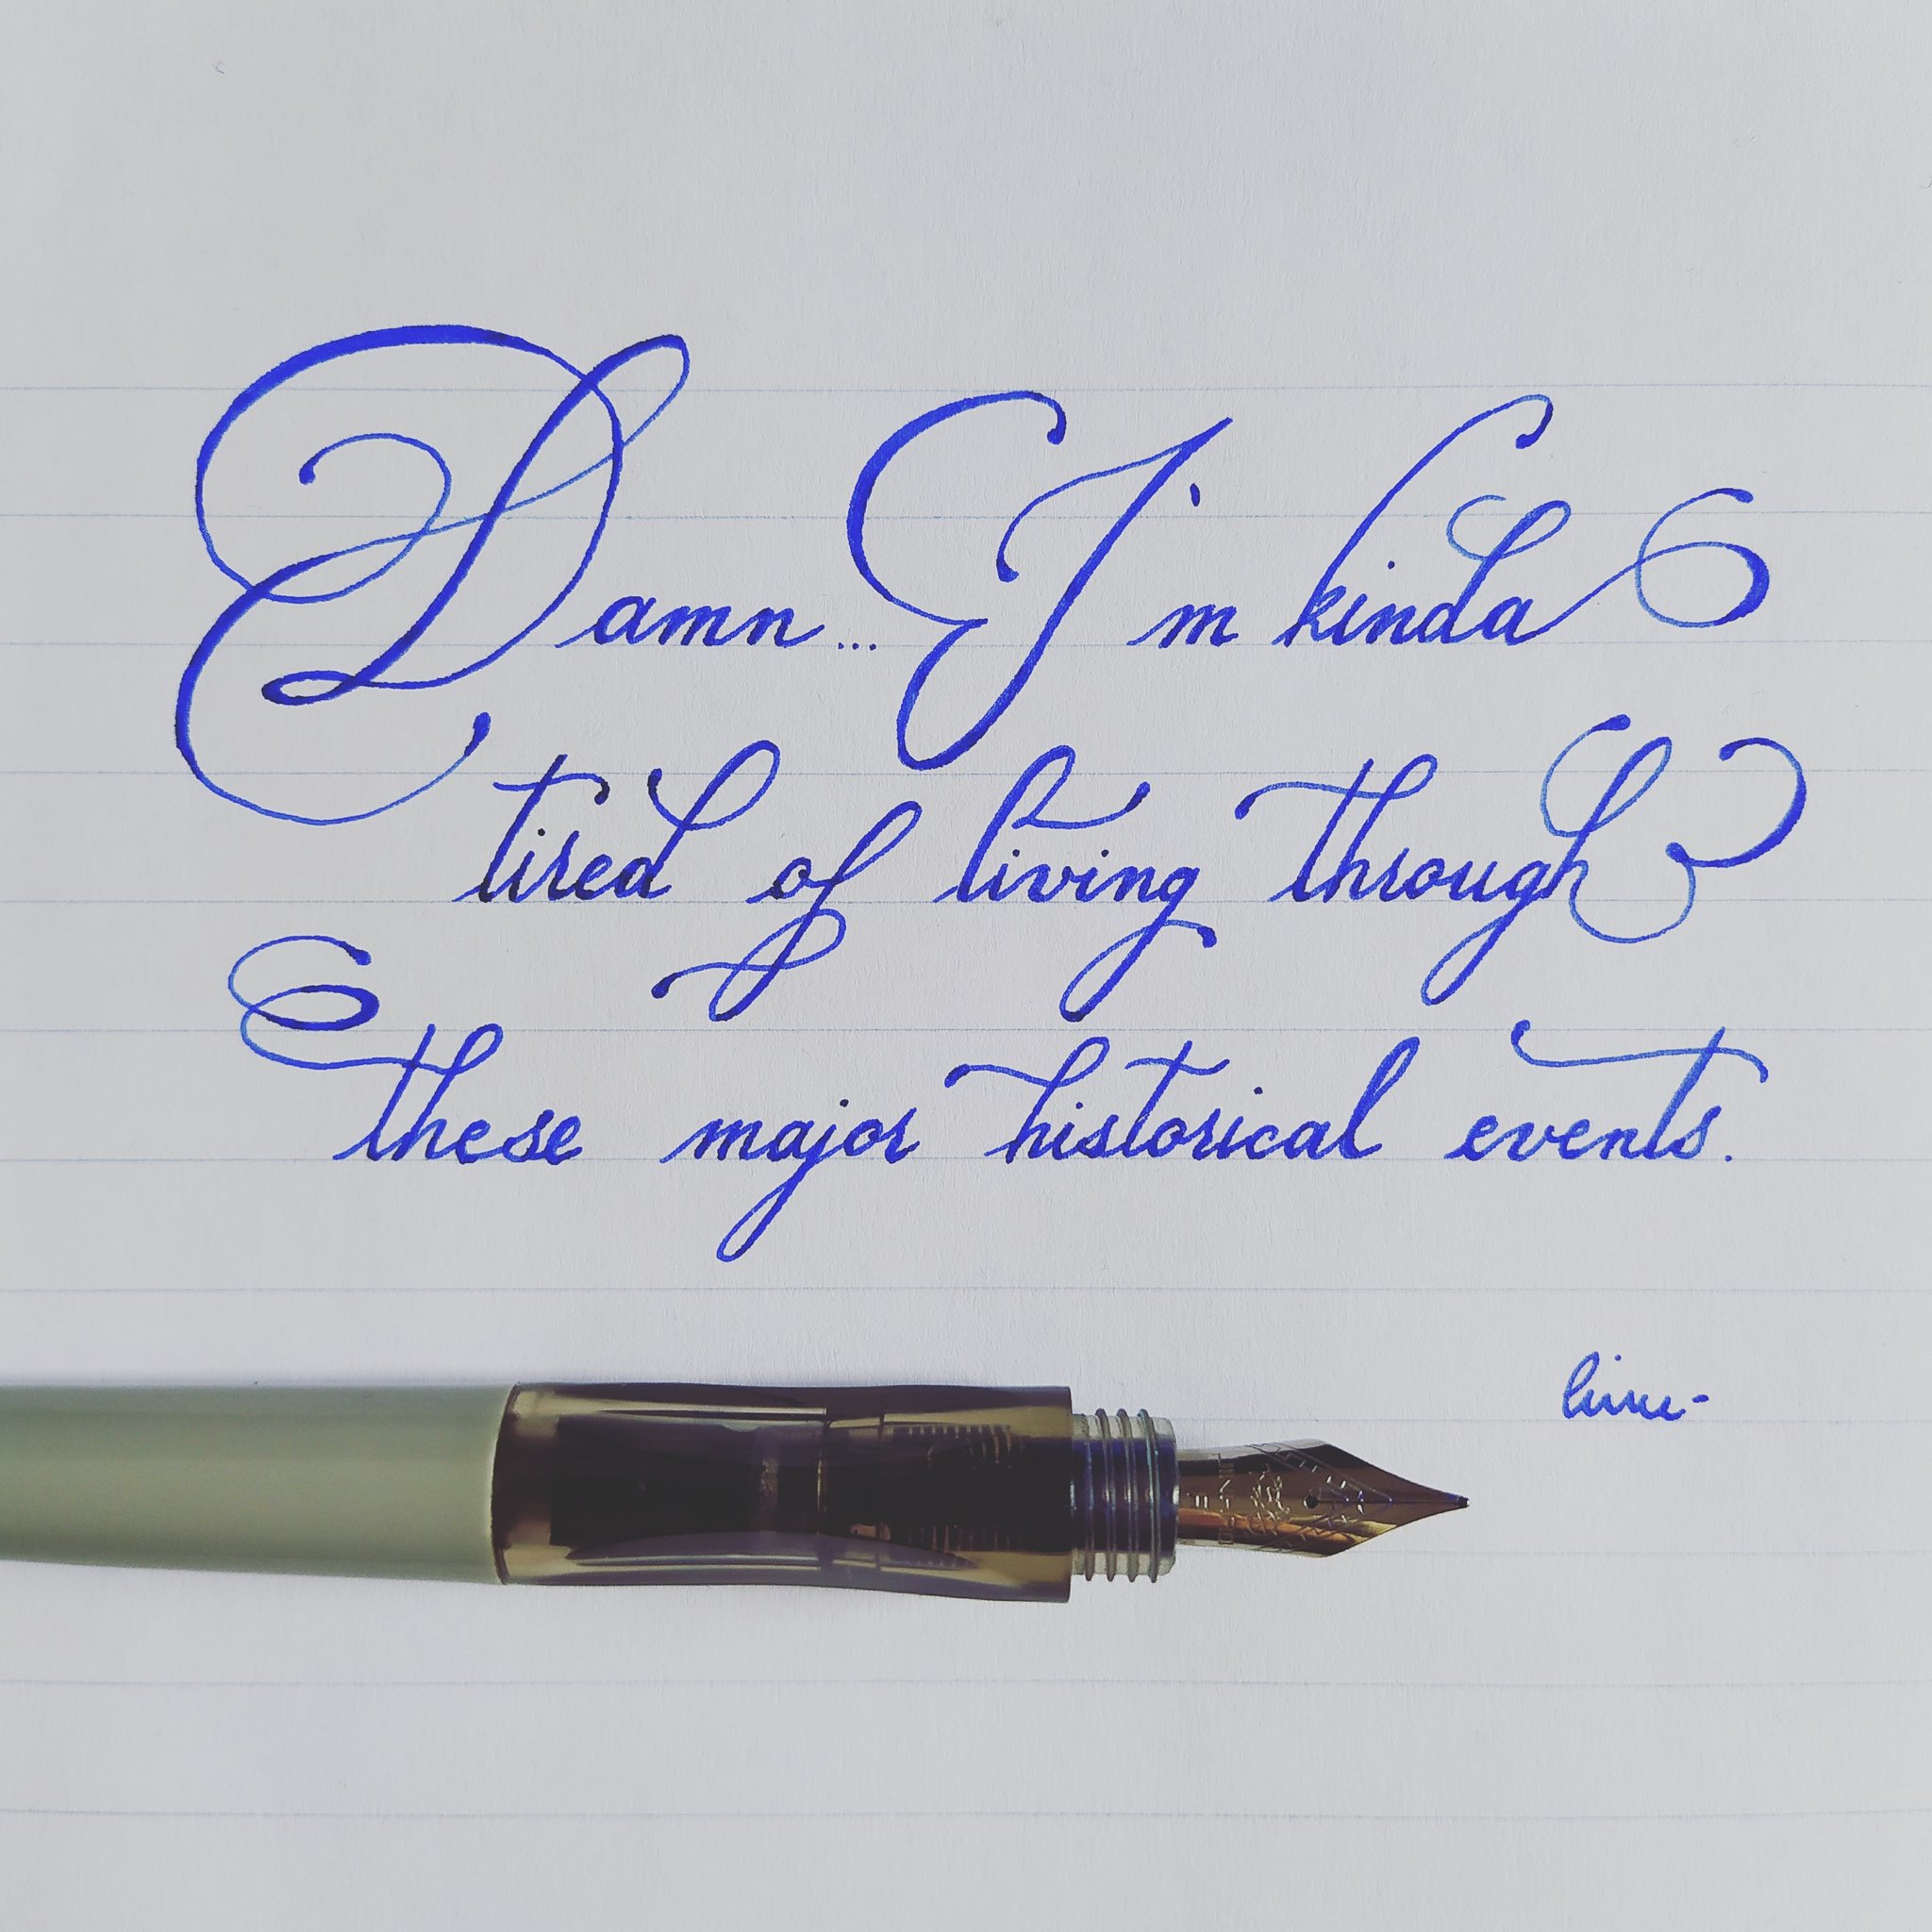 Damn... I'm kinda
tired of living through
these major historical events.